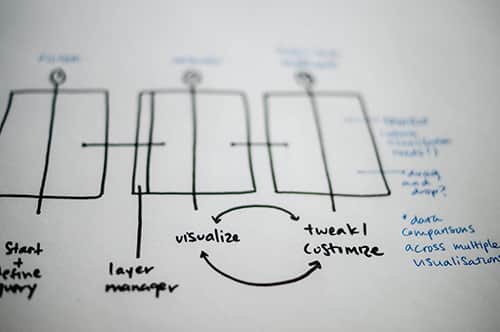 FILTER
Start
+
define
query
layer
manager
visualize
tweak/
customize
drag
and
drop?
* data
comparisons
across multiple
visualisations